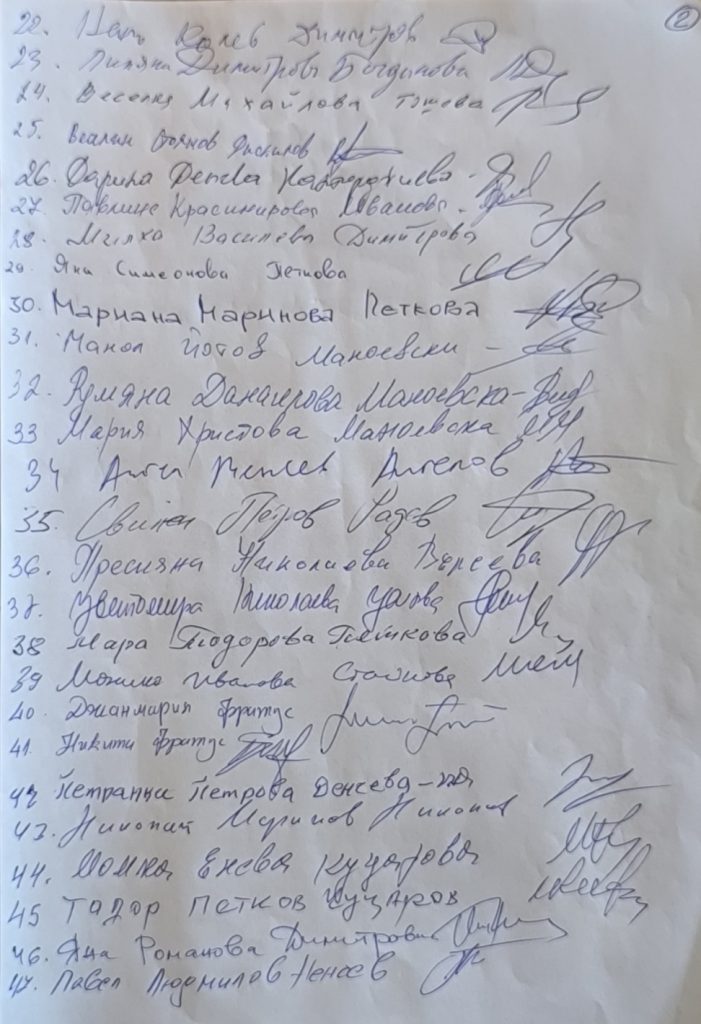 2
22. Колев Димитров
23. Лиляна Димитрова Богданова
24. Веселка Михайлова Тошева
25. Веалин Стоянов
26. Дарина Денева
27. Павлина Красимирова Иванова -
28. Милка Василева Димитрова
29. Яна Симеонова Петкова
30. Мариана Маринова Петкова -
31. Манол Йотов Маноевски -
32. Румяна Данаилова Маноевска -
33 Мария Христова Маноевска
34 Ангелов
35. Свилен Петров Радев
36. Пресияна Николаева Венсева
37. Цветомира Николаева
38 Мара Тодорова Петкова
39 Иванова Стайкова
40. Джанмария Фратус
41. Никити Фратус
42 Петранка Петрова Денсева -
43. Николай Маринов Николов
44. Момка Енева Куцарова
45 Тадор Петков Куцаров
46. Яна Романова Димитрович
47. Павел Людмилов Ненсев